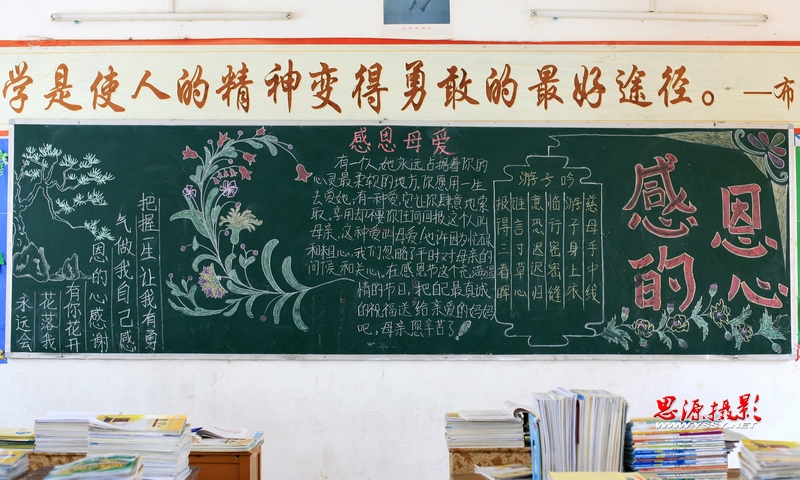 学是使人的精神变得勇敢的最好途径。—布
把握一生让我有勇
气做我自己感
恩的心感谢
有你花开
花落我
永远会
感恩母爱
有一个人,她永远占据着你的
心灵最柔软的地方,你愿用一生
去爱她,有一种爱,它让你肆意地索
取、享用却不要你任何回报,这个人叫
母亲,这种爱叫母爱!也许因为忙碌
和粗心,我们忽略了平时对母亲的
问候和关心,在感恩节这个充满温
情的节日,把自己最真诚
的祝福送给亲爱的妈妈
吧,母亲您辛苦了
游子吟
慈母手中线
游子身上衣
临行密密缝
意恐迟迟归
谁言寸草心
报得三春晖
感恩
的心
思源摄影
WWW.YSSY.NET